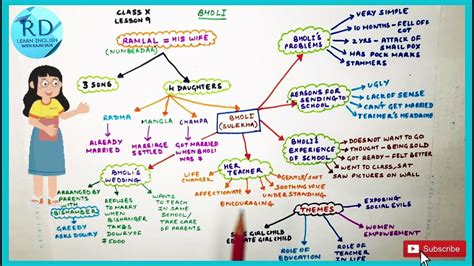 RD
LEARN ENGLISH
WITH RAJNI DUA
CLASS X
LESSON 9
BHOLI
RAMLAL = HIS WIFE
(NUMBERDAR)
3 SONS
4 DAUGHTERS
RADHA
MANGLA
CHAMPA
BHOLI
(SULEKHA)
ALREADY
MARRIED
MARRIAGE
SETTLED
GOT
MARRIED
WHEN BHOLI
WAS 7
BHOLI'S
PROBLEMS
VERY SIMPLE
10 MONTHS - FELL OFF
COT
2 YRS - ATTACK OF
SMALL POX
HAS POCK MARKS
STAMMERS
REASONS FOR
SENDING TO
SCHOOL
UGLY
LACK OF SENSE
CAN'T GET MARRIED
TEACHER'S HEADACHE
BHOLI'S
EXPERIENCE
OF SCHOOL
DOES NOT WANT TO GO
THOUGHT - BEING SOLD
GOT READY - FELT BETTER
WENT TO CLASS, SAT
SAW PICTURES ON WALL
BHOLI'S
WEDDING
ARRANGED BY
PARENTS
WITH
BISHAMBER
GREEDY
ASKS DOWRY
REFUSES
TO MARRY
WHEN
BISHAMBER
TAKES
DOWRY OF
₹ 5000
WANTS
TO TEACH
IN SAME
SCHOOL/
TAKE CARE
OF PARENTS
HER
TEACHER
LIFE
CHANGER
AFFECTIONATE
ENCOURAGING
GENTLE/SOFT
SOOTHING VOICE
UNDERSTANDING
THEMES
EXPOSING
SOCIAL EVILS
WOMEN
EMPOWERMENT
ROLE OF
TEACHER
IN LIFE
ROLE OF
EDUCATION
SAVE GIRL CHILD
EDUCATE GIRL CHILD
Subscribe